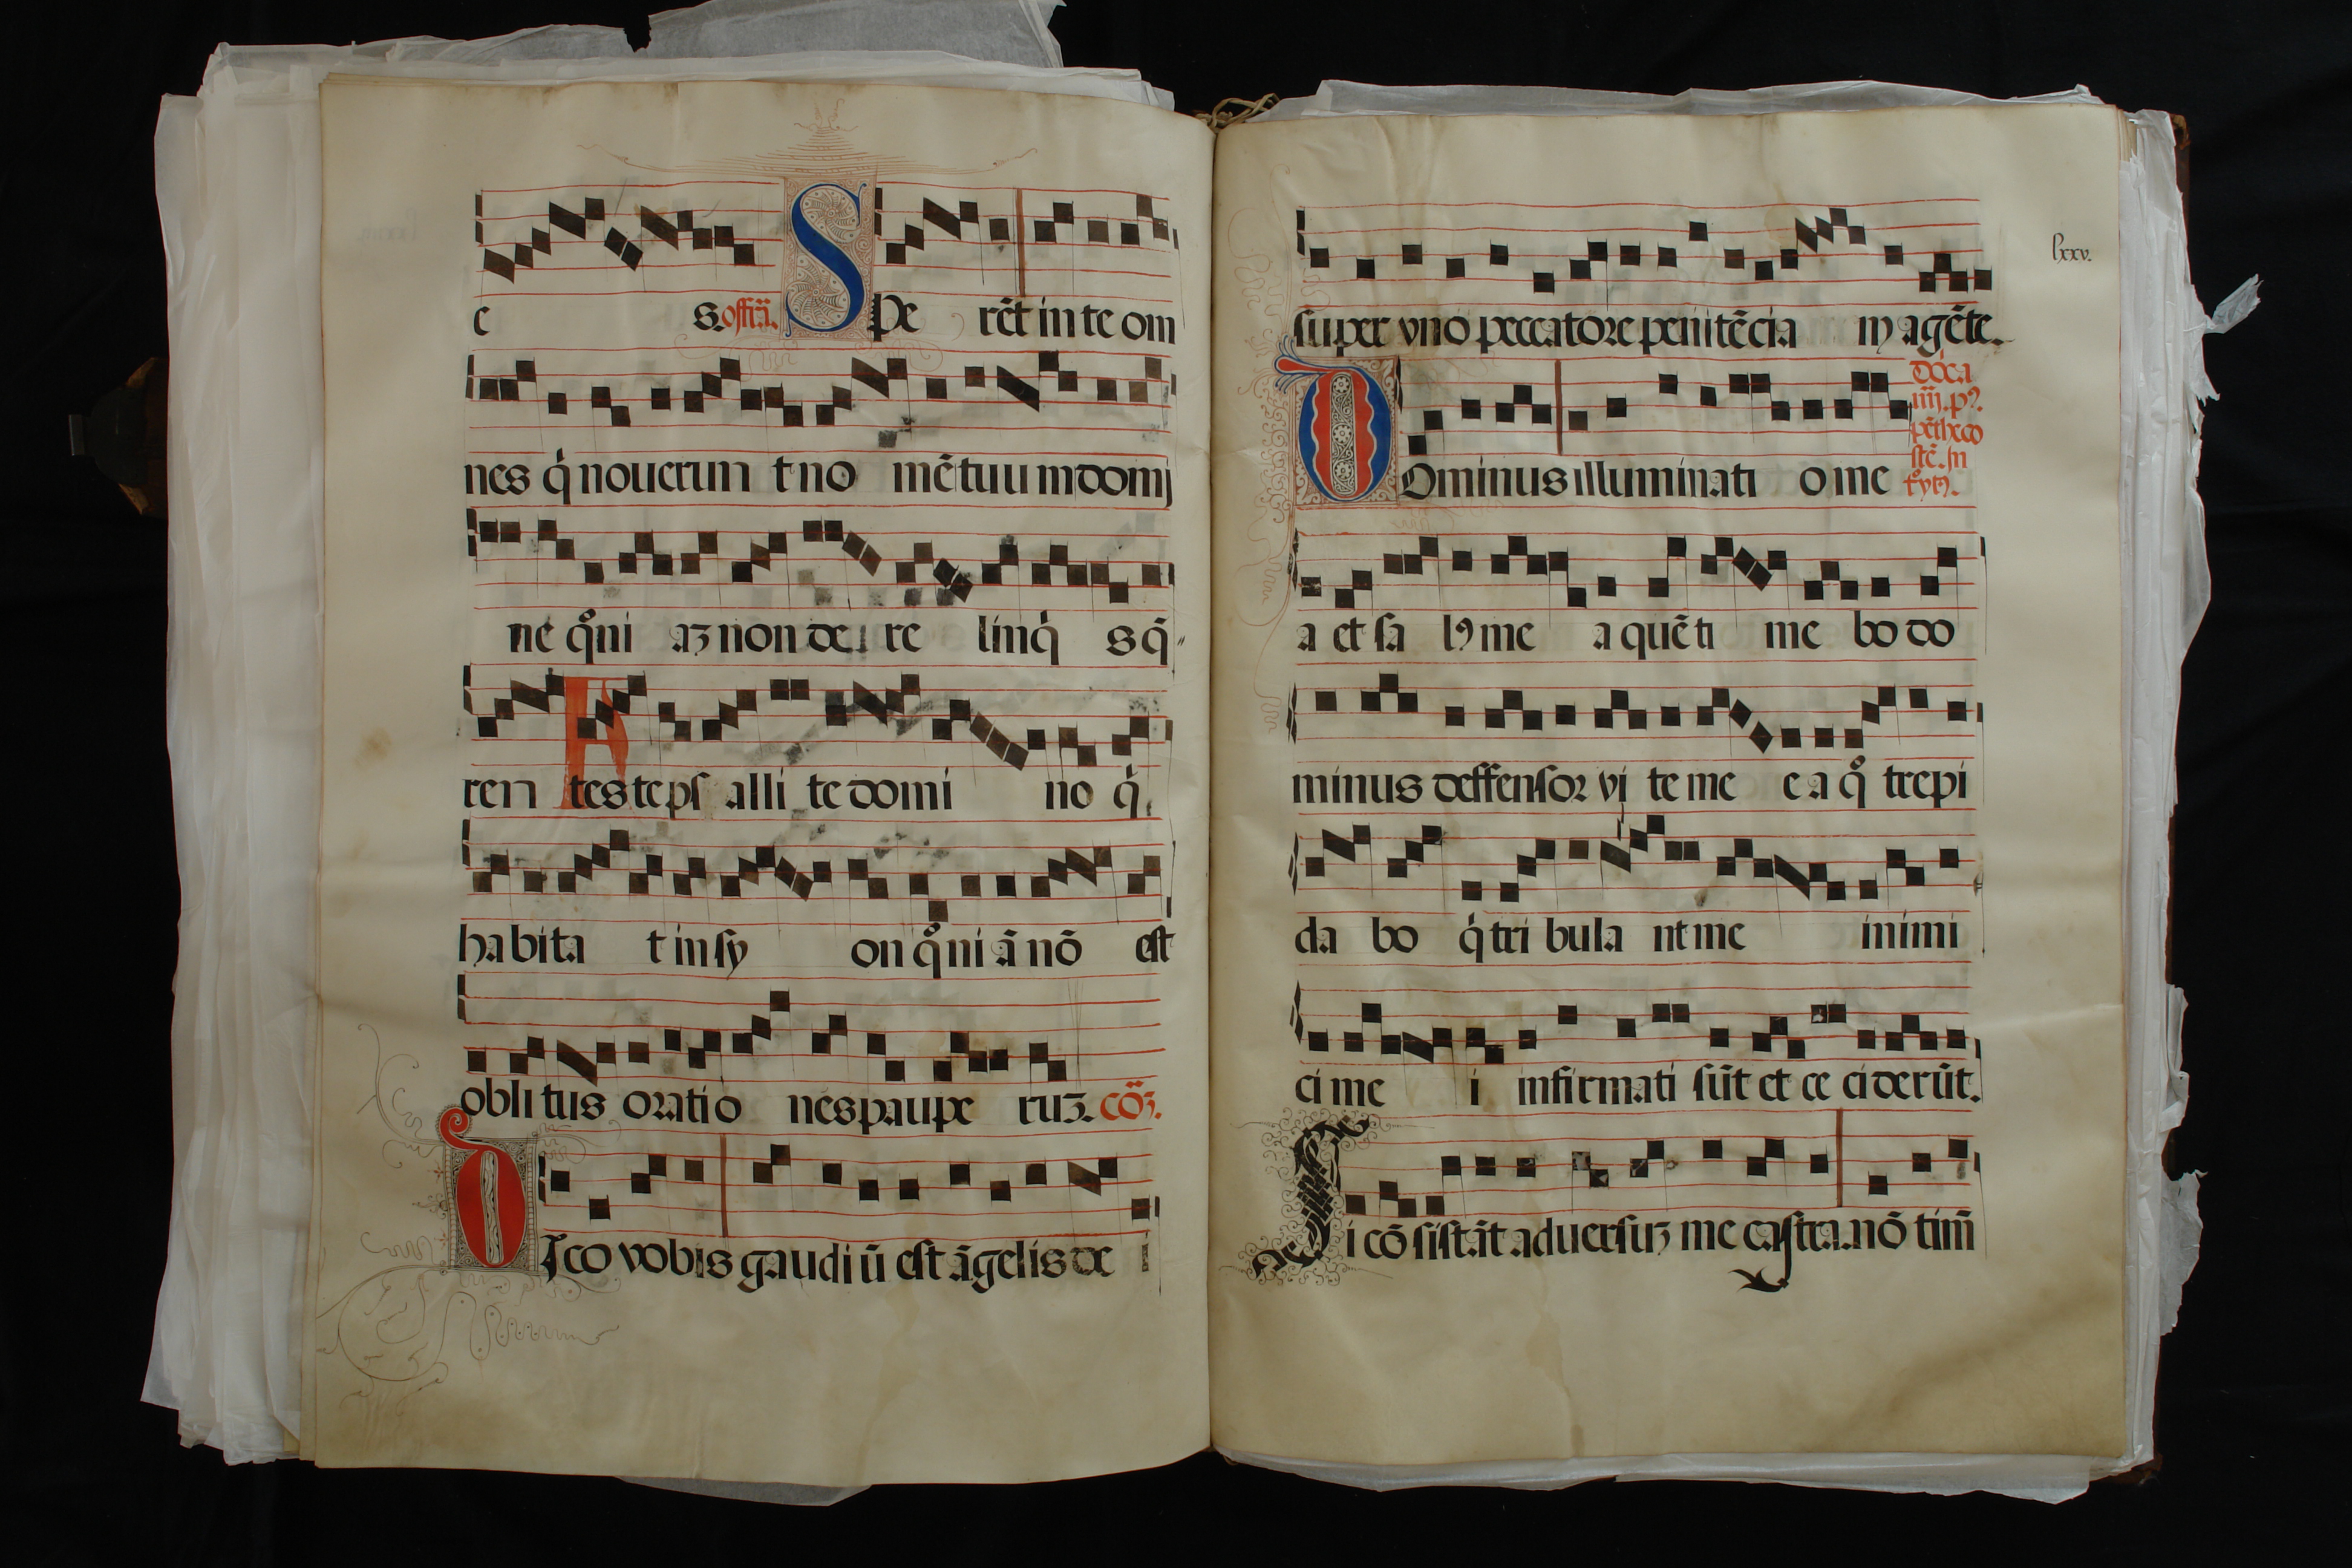 e s. offrã. Spe rẽt in te om
nes q̇ nouerun t no mẽ tuu m domj
ne qm̊ni aʒ non de re linq̇ s q̃
ren tes te ps alli te domi no q̇
habita t in sy on qm̊ni ã nõ est
oblitus oratio nes paupe ruʒ. cõʒ.
DIco vobis gaudi ũ est ãgelis de i
lxxv.
super vno peccatore penitẽcia m agẽte.
Dominus illuminati o me
dõca
iiij. pꝰ.
pẽtheco
stẽ. In
a et sa lꝰ me a quẽ ti me bo do
minus deffensor vi te me e a qͦ trepi
da bo q̇ tri bula nt me inimi
ci me i infirmati sũt et ce ciderũt.
Si cõsistãt aduersuʒ me castra. nõ tim̃